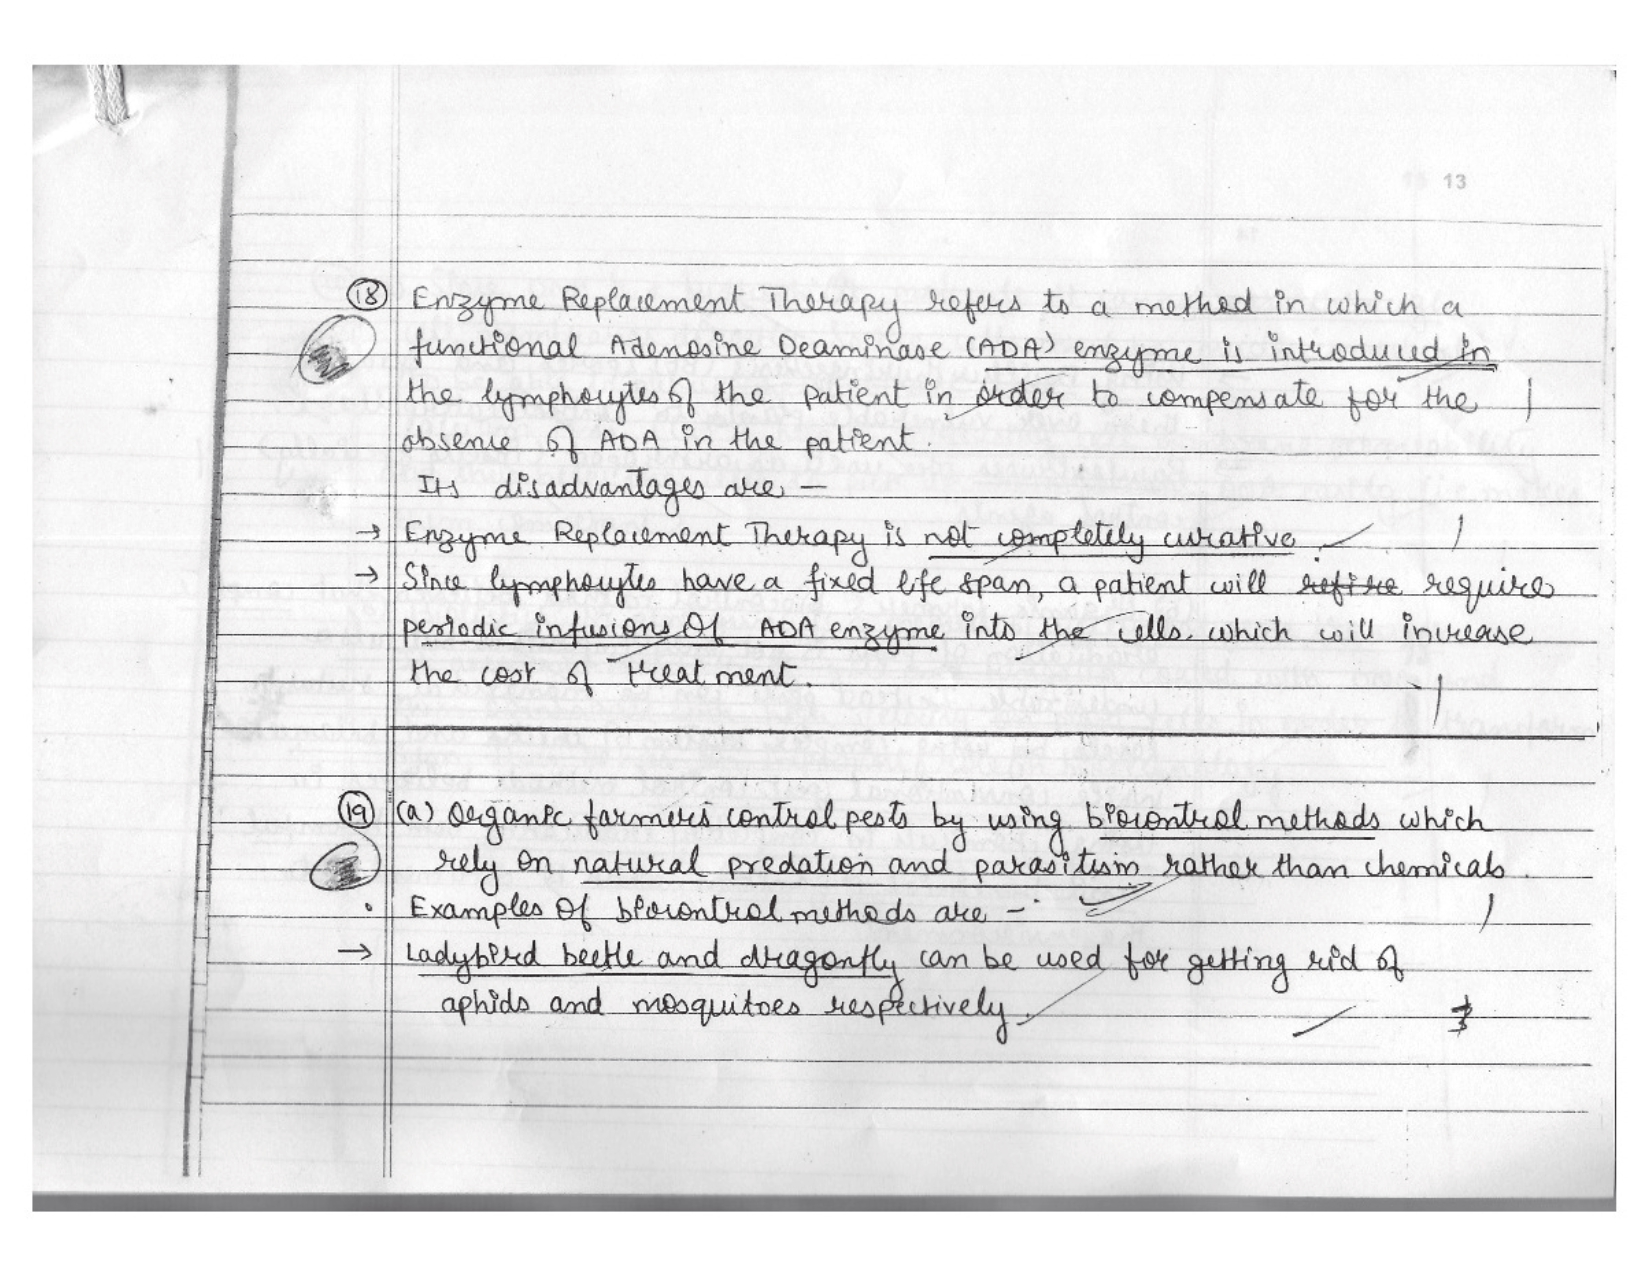 13
18 Enzyme Replacement Therapy refers to a method in which a
functional Adenosine Deaminase (ADA) enzyme is introduced in
the lymphocytes of the patient in order to compensate for the
absence of ADA in the patient.
Its disadvantages are -
→ Enzyme Replacement Therapy is not completely curative.
→ Since lymphocytes have a fixed life span, a patient will require
periodic infusions of ADA enzyme into the cells which will increase
the cost of treatment.
19 (a) Organic farmers control pests by using biocontrol methods which
rely on natural predation and parasitism rather than chemicals.
• Examples of biocontrol methods are -
→ Ladybird beetle and dragonfly can be used for getting rid of
aphids and mosquitoes respectively.